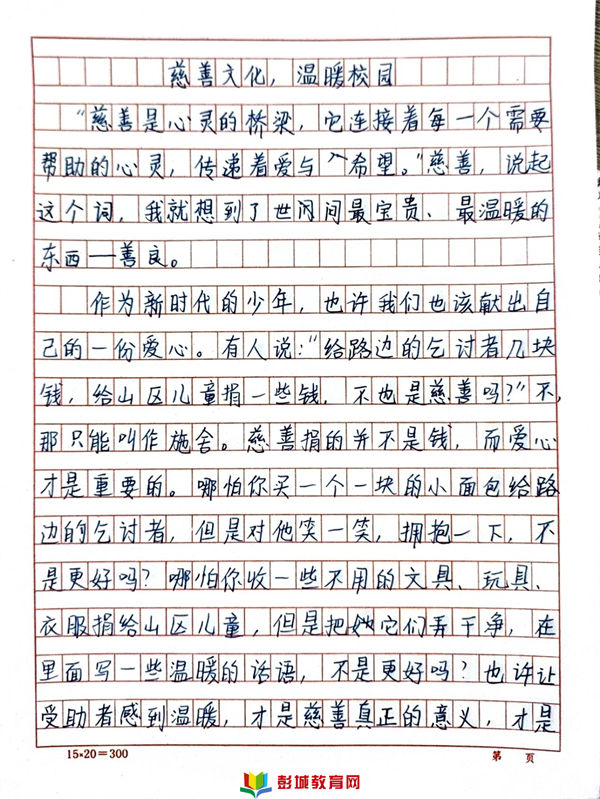 慈善文化，温暖校园
“慈善是心灵的桥梁，它连接着每一个需要
帮助的心灵，传递着爱与希望。”慈善，说起
这个词，我就想到了世间间最宝贵、最温暖的
东西——善良。
作为新时代的少年，也许我们也该献出自
己的一份爱心。有人说：“给路边的乞讨者几块
钱，给山区儿童捐一些钱，不也是慈善吗？”不，
那只能叫作施舍。慈善捐的并不是钱，而爱心
才是重要的。哪怕你买一个一块的小面包给路
边的乞讨者，但是对他笑一笑，拥抱一下，不
是更好吗？哪怕你收一些不用的文具、玩具、
衣服捐给山区儿童，但是把它们弄干净，在
里面写一些温暖的话语，不是更好吗？也许让
受助者感到温暖，才是慈善真正的意义，才是
15×20=300 第 页
彭城教育网